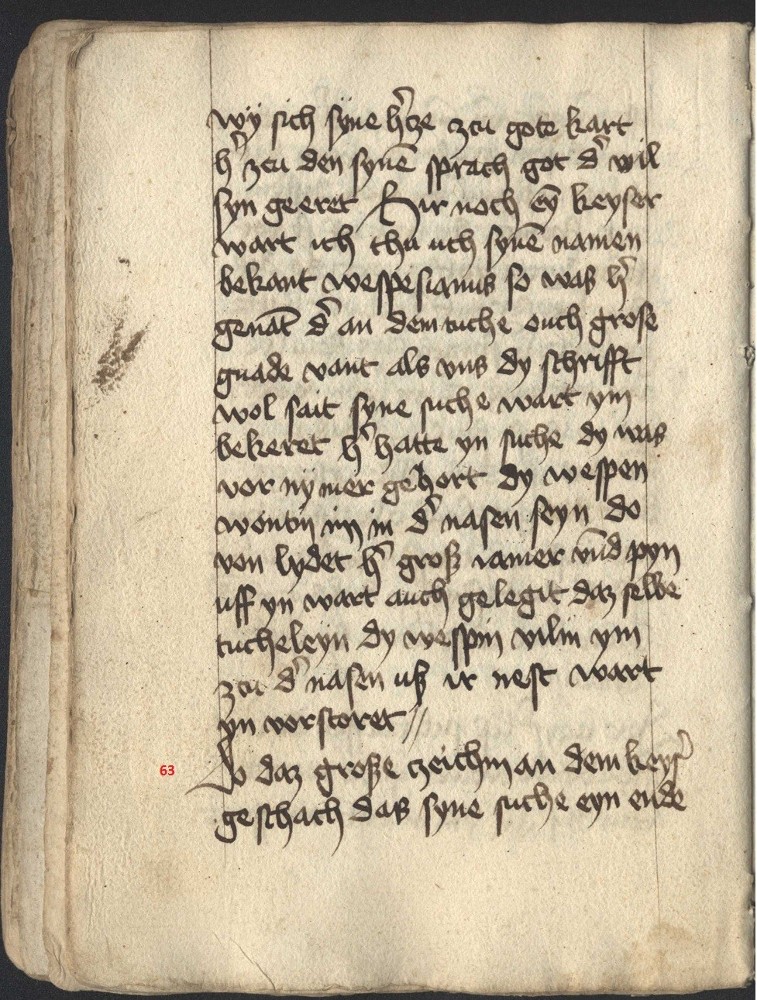 wy sich syne h'cze zcu gote kart
h' zcu den synē sprach got d' wil
syn geeret Hir noch eȳ keyser
wart ich thu uch synē namen
bekant wespesianus so was h'
genāt d' an dem tuche ouch grose
gnade vant als vns dy schrifft
wol sait syne suche wart ym
bekeret h' hatte yn suche dy was
vor nymer gehort dy wespen
wontin im in d' nasen seyn do
von lydet h' groß iamer vnd pyn
uff yn wart auch gelegit daz selbe
tucheleyn dy wespin vilin ym
zcu d' nasen uß ir nest wart
yn vorstoret //
63 Do daz große czeichin an dem keys'
geschach das syne suche eyn ende